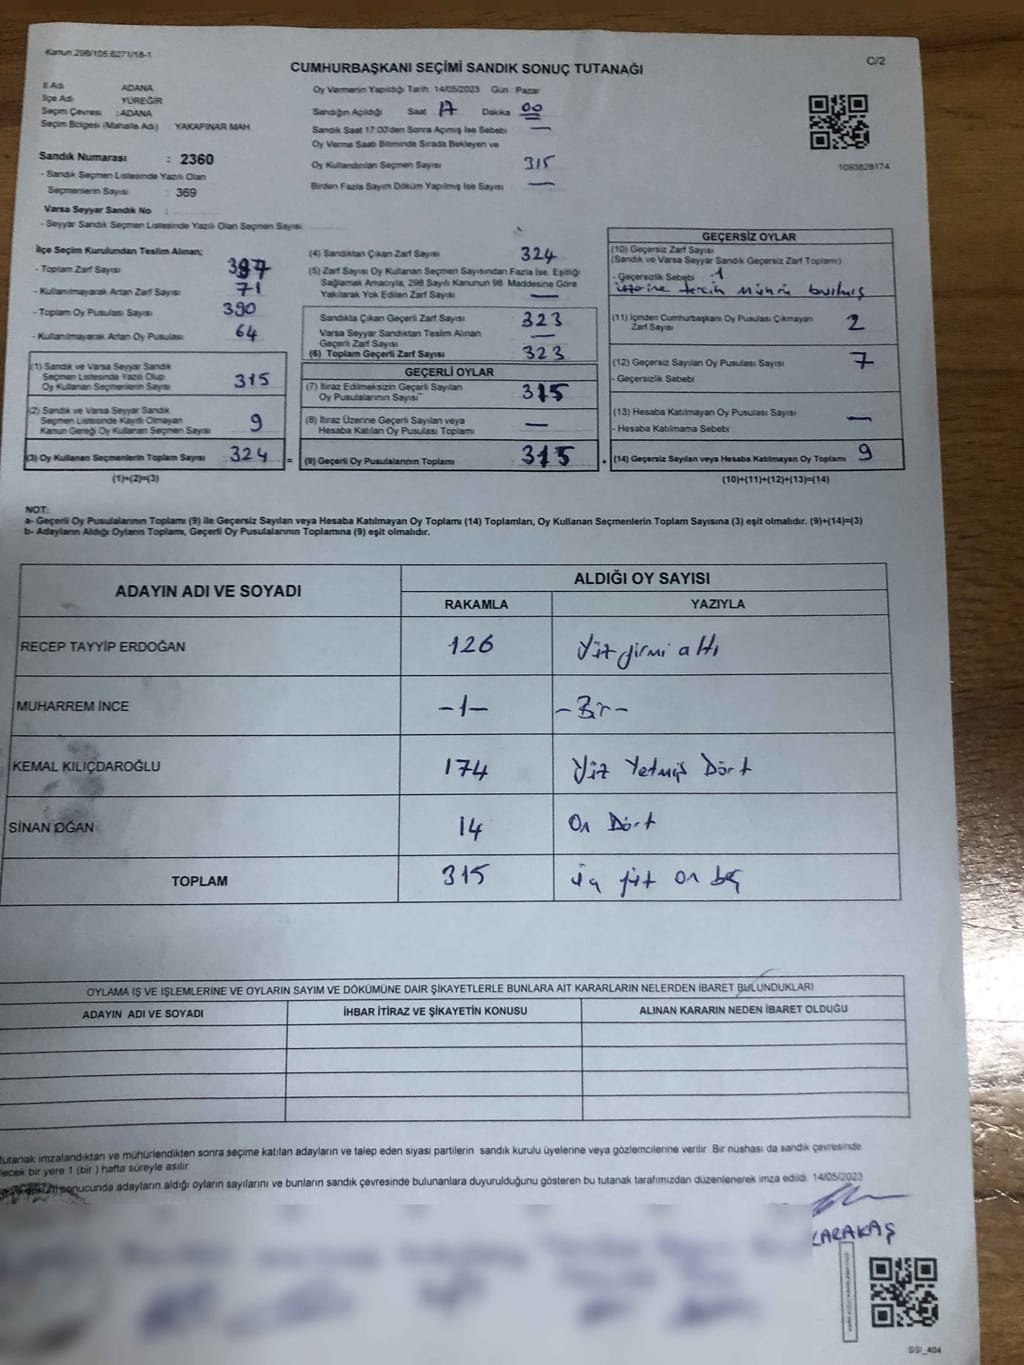 Kanun 298/105;6271/18-1
C/2
CUMHURBAŞKANI SEÇİMİ SANDIK SONUÇ TUTANAĞI
İl Adı ADANA
İlçe Adı YÜREĞİR
Seçim Çevresi : ADANA
Seçim Bölgesi (Mahalle Adı) YAKAPINAR MAH.
Sandık Numarası : 2360
- Sandık Seçmen Listesinde Yazılı Olan
Seçmenlerin Sayısı 369
Varsa Seyyar Sandık No :
- Seyyar Sandık Seçmen Listesinde Yazılı Olan Seçmen Sayısı
Oy Vermenin Yapıldığı Tarih: 14/05/2023 Gün : Pazar
Sandığın Açıldığı Saat 17 Dakika 00
Sandık Saat 17:00'den Sonra Açılmış İse Sebebi —
Oy Verme Saati Bitiminde Sırada Bekleyen ve
Oy Kullandırılan Seçmen Sayısı 315
Birden Fazla Sayım Döküm Yapılmış İse Sayısı —
1093828174
İlçe Seçim Kurulundan Teslim Alınan;
- Toplam Zarf Sayısı
- Kullanılmayarak Artan Zarf Sayısı 71
- Toplam Oy Pusulası Sayısı 390
- Kullanılmayarak Artan Oy Pusulası 64
(1) Sandık ve Varsa Seyyar Sandık
Seçmen Listesinde Yazılı Olup
Oy Kullanan Seçmenlerin Sayısı 315
(2) Sandık ve Varsa Seyyar Sandık
Seçmen Listesinde Kayıtlı Olmayan
Kanun Gereği Oy Kullanan Seçmen Sayısı 9
(3) Oy Kullanan Seçmenlerin Toplam Sayısı 324 =
(1)+(2)=(3)
(4) Sandıktan Çıkan Zarf Sayısı 324
(5) Zarf Sayısı Oy Kullanan Seçmen Sayısından Fazla İse, Eşitliği
Sağlamak Amacıyla, 298 Sayılı Kanunun 98. Maddesine Göre
Yakılarak Yok Edilen Zarf Sayısı —
Sandıkta Çıkan Geçerli Zarf Sayısı 323
Varsa Seyyar Sandıktan Teslim Alınan
Geçerli Zarf Sayısı —
(6) Toplam Geçerli Zarf Sayısı 323
GEÇERLİ OYLAR
(7) İtiraz Edilmeksizin Geçerli Sayılan
Oy Pusulalarının Sayısı 315
(8) İtiraz Üzerine Geçerli Sayılan veya
Hesaba Katılan Oy Pusulası Toplamı —
(9) Geçerli Oy Pusulalarının Toplamı 315 +
GEÇERSİZ OYLAR
(10) Geçersiz Zarf Sayısı
(Sandık ve Varsa Seyyar Sandık Geçersiz Zarf Toplamı)
- Geçersizlik Sebebi 1
üzerine tercih mührü basılmış
(11) İçinden Cumhurbaşkanı Oy Pusulası Çıkmayan
Zarf Sayısı 2
(12) Geçersiz Sayılan Oy Pusulası Sayısı 7
- Geçersizlik Sebebi
(13) Hesaba Katılmayan Oy Pusulası Sayısı —
- Hesaba Katılmama Sebebi
(14) Geçersiz Sayılan veya Hesaba Katılmayan Oy Toplamı 9
(10)+(11)+(12)+(13)=(14)
NOT:
a- Geçerli Oy Pusulalarının Toplamı (9) ile Geçersiz Sayılan veya Hesaba Katılmayan Oy Toplamı (14) Toplamları, Oy Kullanan Seçmenlerin Toplam Sayısına (3) eşit olmalıdır. (9)+(14)=(3)
b- Adayların Aldığı Oyların Toplamı, Geçerli Oy Pusulalarının Toplamına (9) eşit olmalıdır.
ADAYIN ADI VE SOYADI ALDIĞI OY SAYISI
RAKAMLA YAZIYLA
RECEP TAYYİP ERDOĞAN 126 Yüz yirmi altı
MUHARREM İNCE -1- -Bir-
KEMAL KILIÇDAROĞLU 174 Yüz Yetmiş Dört
SİNAN OĞAN 14 On Dört
TOPLAM 315 üç yüz on beş
OYLAMA İŞ VE İŞLEMLERİNE VE OYLARIN SAYIM VE DÖKÜMÜNE DAİR ŞİKAYETLERLE BUNLARA AİT KARARLARIN NELERDEN İBARET BULUNDUKLARI
ADAYIN ADI VE SOYADI İHBAR İTİRAZ VE ŞİKAYETİN KONUSU ALINAN KARARIN NEDEN İBARET OLDUĞU
tutanak imzalandıktan ve mühürlendikten sonra seçime katılan adayların ve talep eden siyasi partilerin sandık kurulu üyelerine veya gözlemcilerine verilir. Bir nüshası da sandık çevresinde
bir yere 1 (bir ) hafta süreyle asılır.
sonucunda adayların aldığı oyların sayılarını ve bunların sandık çevresinde bulunanlara duyurulduğunu gösteren bu tutanak tarafımızdan düzenlenerek imza edildi. 14/05/2023
KARAKAŞ
SSI_404